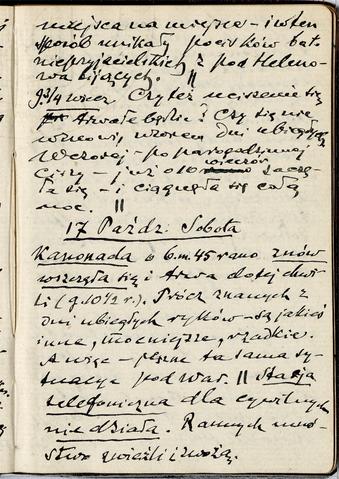 miejsca na miejsce – i w ten
sposób unikały pocisków bat.
nieprzyjacielskich z pod Helenо-
wa bijących. ||
g. 9 3/4 wiecz. Czy też uciszenie się
trwałe będzie? Czy się nie
wznowi, wzorem dni ubiegłych
Wczoraj – po parogodzinnej
ciszy – już o 10 wieczór zaczę-
ła się – i ciągnęła się całą
noc. ||
17 Paźdz. Sobota
Kanonada o 6.m.45 rano znów
wszczęła się i trwa do tej chwi-
li (g. 10 1/2 r.). Prócz znanych z
dni ubiegłych ryków – są jakieś
inne, mocniejsze, rzadkie.
A więc – pewne ta sama sy-
tuacja pod War. || Stacja
telefoniczna dla cywilnych
nie działa. Rannych mnó-
stwo zwieźli i zwożą.